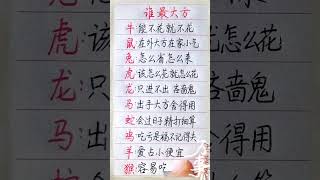 谁最大方
牛能不花就不花
鼠在外大方在家小气
兔怎么省怎么来
虎该怎么花就怎么花
龙只进不出吝啬鬼
马出手大方舍得用
蛇会过日子精打细算
鸡吃亏是福不记得失
羊爱占小便宜
猴容易吃